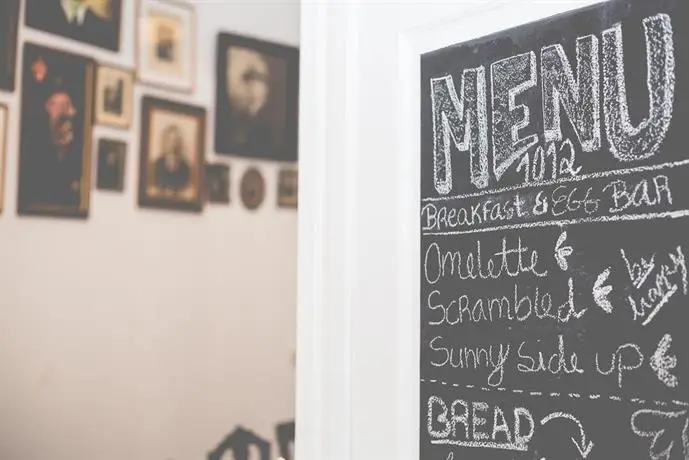 MENU
1012
BREAKFAST & EGG BAR
Omelette
Scrambled
by
Sunny Side up
BREAD